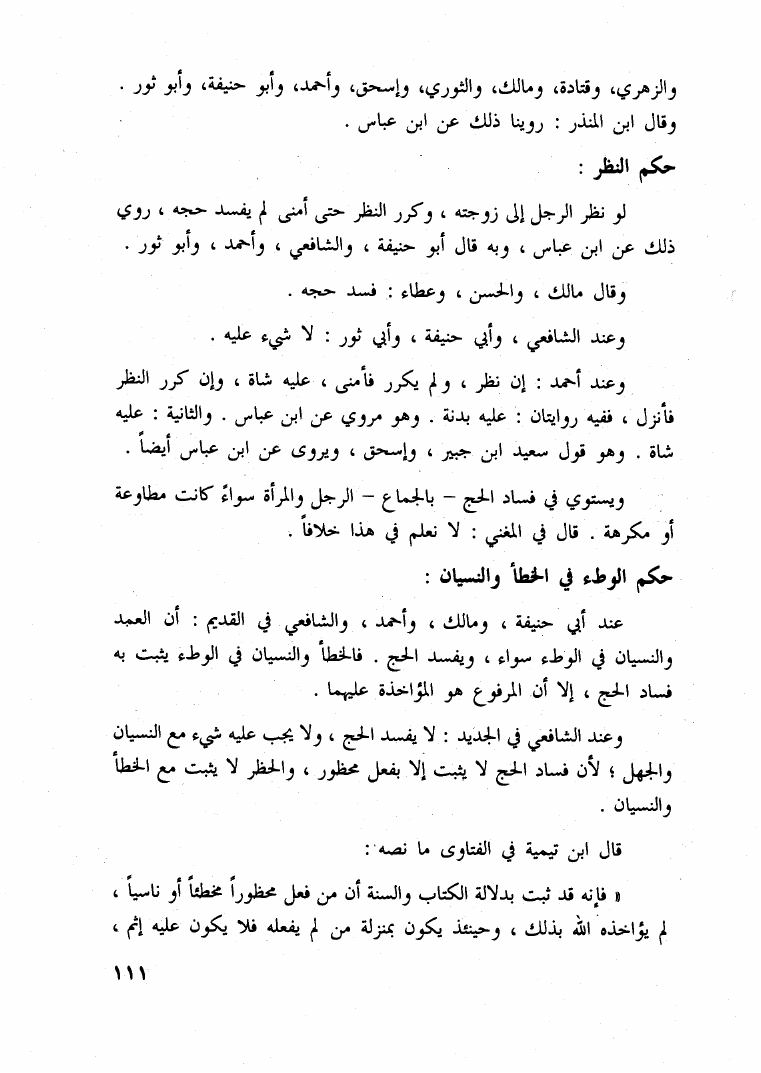 والزهري، وقتادة، ومالك، والثوري، وإسحق، وأحمد، وأبو حنيفة، وأبو ثور .
وقال ابن المنذر : روينا ذلك عن ابن عباس .
حكم النظر :
لو نظر الرجل إلى زوجته ، وكرر النظر حتى أمنى لم يفسد حجه ، روي
ذلك عن ابن عباس ، وبه قال أبو حنيفة ، والشافعي ، وأحمد ، وأبو ثور .
وقال مالك ، والحسن ، وعطاء : فسد حجه .
وعند الشافعي ، وأبي حنيفة ، وأبي ثور : لا شيء عليه .
وعند أحمد : إن نظر ، ولم يكرر فأمنى ، عليه شاة ، وإن كرر النظر
فأنزل ، ففيه روايتان : عليه بدنة . وهو مروي عن ابن عباس . والثانية : عليه
شاة . وهو قول سعيد ابن جبير ، وإسحق ، ويروى عن ابن عباس أيضاً .
ويستوي في فساد الحج – بالجماع – الرجل والمرأة سواءً كانت مطاوعة
أو مكرهة . قال في المغني : لا نعلم في هذا خلافاً .
حكم الوطء في الخطأ والنسيان :
عند أبي حنيفة ، ومالك ، وأحمد ، والشافعي في القديم : أن العمد
والنسيان في الوطء سواء ، ويفسد الحج . فالخطأ والنسيان في الوطء يثبت به
فساد الحج ، إلا أن المرفوع هو المؤاخذة عليهما .
وعند الشافعي في الجديد : لا يفسد الحج ، ولا يجب عليه شيء مع النسيان
والجهل ؛ لأن فساد الحج لا يثبت إلا بفعل محظور ، والحظر لا يثبت مع الخطأ
والنسيان .
قال ابن تيمية في الفتاوى ما نصه :
« فإنه قد ثبت بدلالة الكتاب والسنة أن من فعل محظوراً مخطئاً أو ناسياً ،
لم يؤاخذه الله بذلك ، وحينئذ يكون بمنزلة من لم يفعله فلا يكون عليه إثم ،
١١١